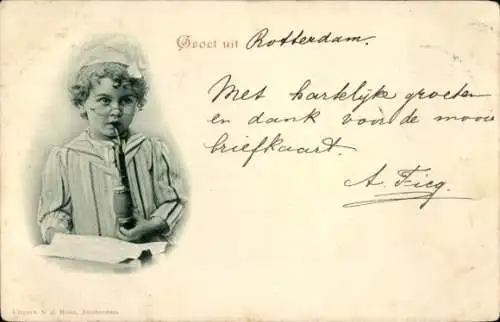 Groet uit Rotterdam.
Met hartelijke groeten
en dank voor de mooie
briefkaart.
A.
Uitgave
Amsterdam